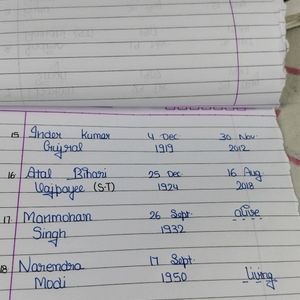 15 Inder Kumar 4 Dec 30 Nov.
Gujral 1919 2012
16 Atal Bihari 25 Dec 16 Aug
Vajpayee (S.T) 1924 2018
17 Manmohan 26 Sept. alive
Singh 1932
18 Narendra 17 Sept.
Modi 1950 Living